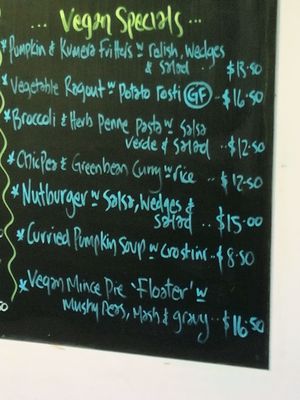 ... Vegan Specials ...
* Pumpkin & Kumera Fritters w relish, wedges
& salad ... $13.50
* Vegetable Ragout w Potato rosti GF .. $16.50
* Broccoli & Herb Penne Pasta w Salsa
Verde & Salad .. $12.50
* Chickpea & Greenbean Curry w rice .. $12.50
* Nutburger w Salsa, Wedges &
salad .. $15.00
* Curried Pumpkin Soup w Crostini . $8.50
* Vegan Mince Pie 'Floater' w
Mushy Peas, Mash & gravy .. $16.50
50